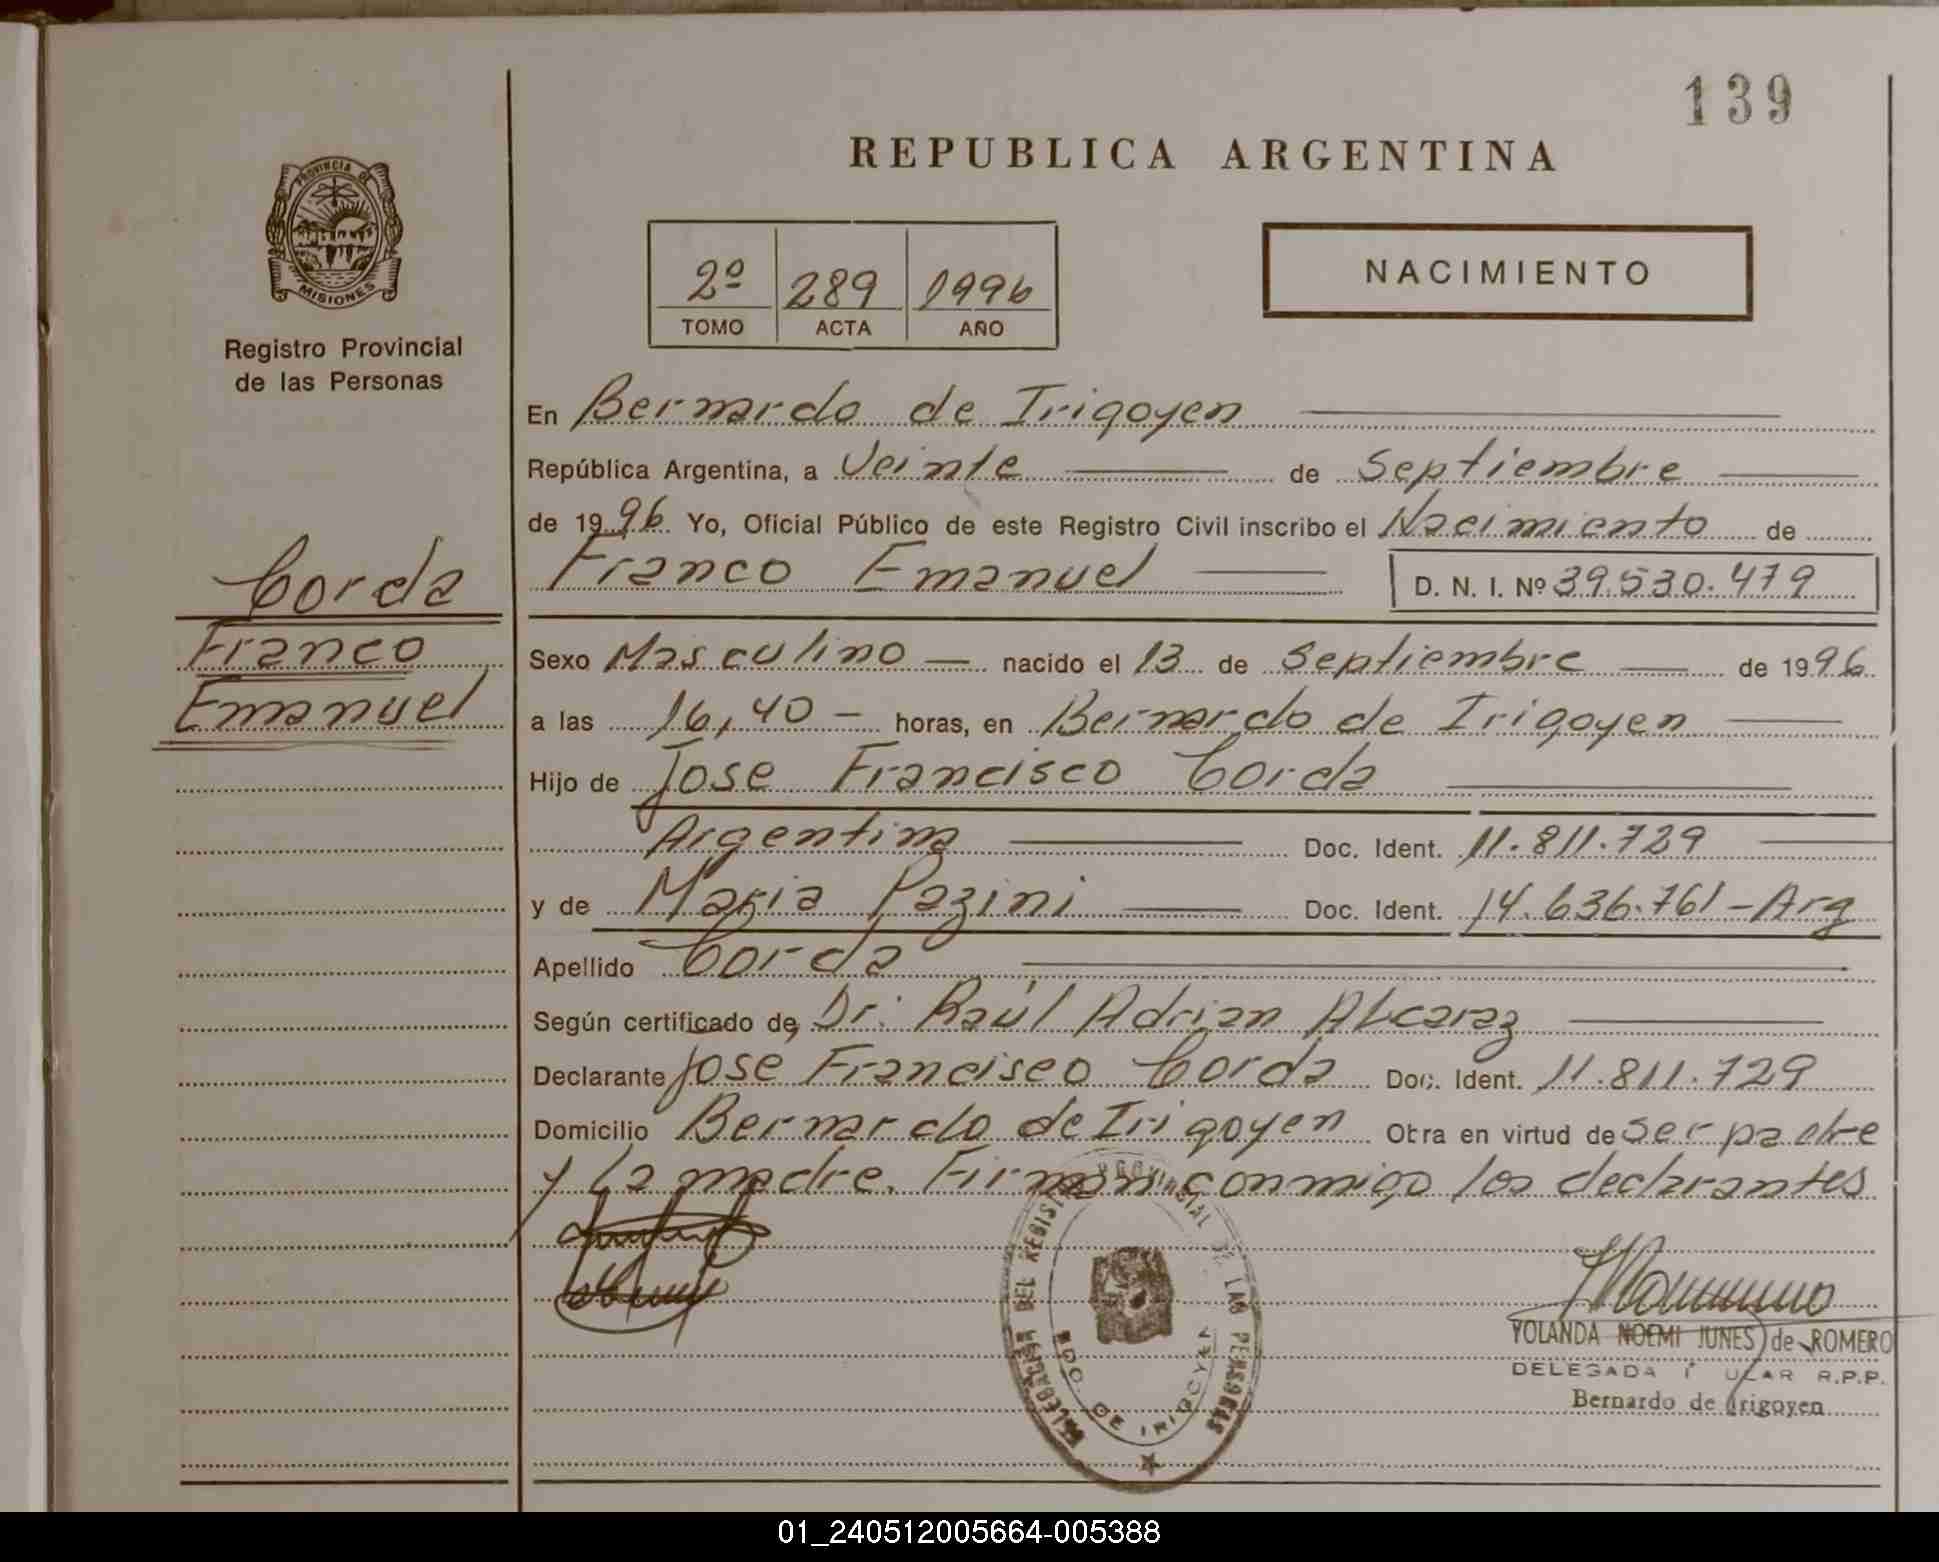 139
REPUBLICA ARGENTINA
PROVINCIA DE
MISIONES
Registro Provincial
de las Personas
2º 289 1996
TOMO ACTA AÑO
NACIMIENTO
Corda
Franco
Emanuel
En Bernardo de Irigoyen
República Argentina, a Veinte de Septiembre
de 1996 Yo, Oficial Público de este Registro Civil inscribo el Nacimiento de
Franco Emanuel D. N. I. Nº 39.530.479
Sexo Masculino nacido el 13 de Septiembre de 1996
a las 16,40 horas, en Bernardo de Irigoyen
Hijo de Jose Francisco Corda
Argentina Doc. Ident. 11.811.729
y de Maria Pazini Doc. Ident. 14.636.761 - Arg
Apellido Corda
Según certificado de Dr: Raúl Adrian Alcaraz
Declarante Jose Francisco Corda Doc. Ident. 11.811.729
Domicilio Bernardo de Irigoyen Obra en virtud de ser padre
y la madre. Firman conmigo los declarantes
DELEGACION DEL REGISTRO PROVINCIAL DE LAS PERSONAS
BDO. DE IRIGOYEN
YOLANDA NOEMI JUNES de ROMERO
DELEGADA R.P.P.
Bernardo de Irigoyen
01_240512005664-005388